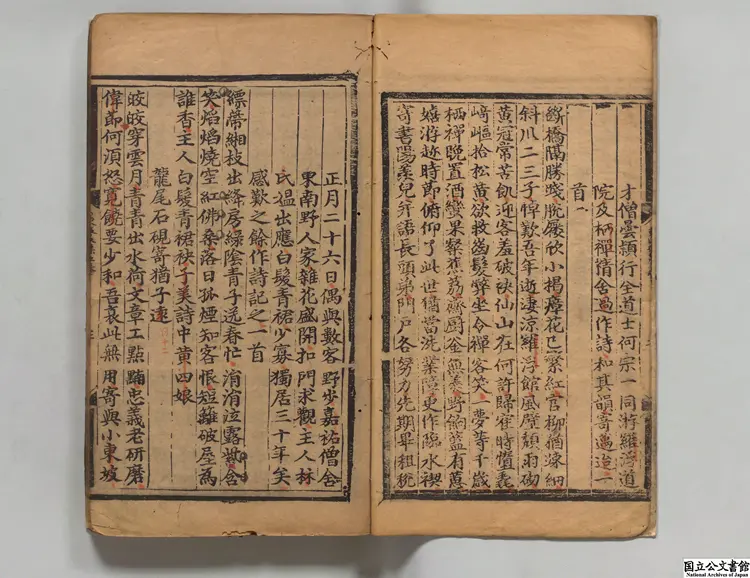 才僧曇頴行全道士何宗一同游羅浮道
院及栖禪情舍過作詩和其韻寄邁迨一
首
斷橋隔勝踐脫屨欣小揭瘴花已繁紅官柳猶疎細
斜川二三子悼歎吾年逝淒涼羅浮館風壁頹雨砌
黃冠常苦飢迎客羞破袂仙山在何許歸雀時墮毳
崎嶇拾松黃欲救齒髮弊坐令禪客笑一夢等千歲
栖禪晚置酒蠻果粲蕉荔齋厨釜無羮野餉籃有蕙
嬉游趂時節俯仰了此世猶當洗業障更作臨水禊
寄書陽羨兒并語長頭弟門戶各努力先期畢租稅
正月二十六日偶與數客野步嘉祐僧舍
東南野人家雜花盛開扣門求觀主人林
氏媪出應白髮青裙少寡獨居三十年矣
感歎之餘作詩記之一首
縹蔕緗枝出絳房綠陰青子送春忙涓涓泣露紫含
笑焰焰燒空紅佛桑落日孤煙知客恨短籬破屋為
誰香主人白髮青裙袂子美詩中黃四娘
龍尾石硯寄猶子遠
皎皎穿雲月青青出水荷文章工點黝忠義老研磨
偉節何須怒寬饒要少和吾衰此無用寄與小東坡
国立公文書館
National Archives of Japan